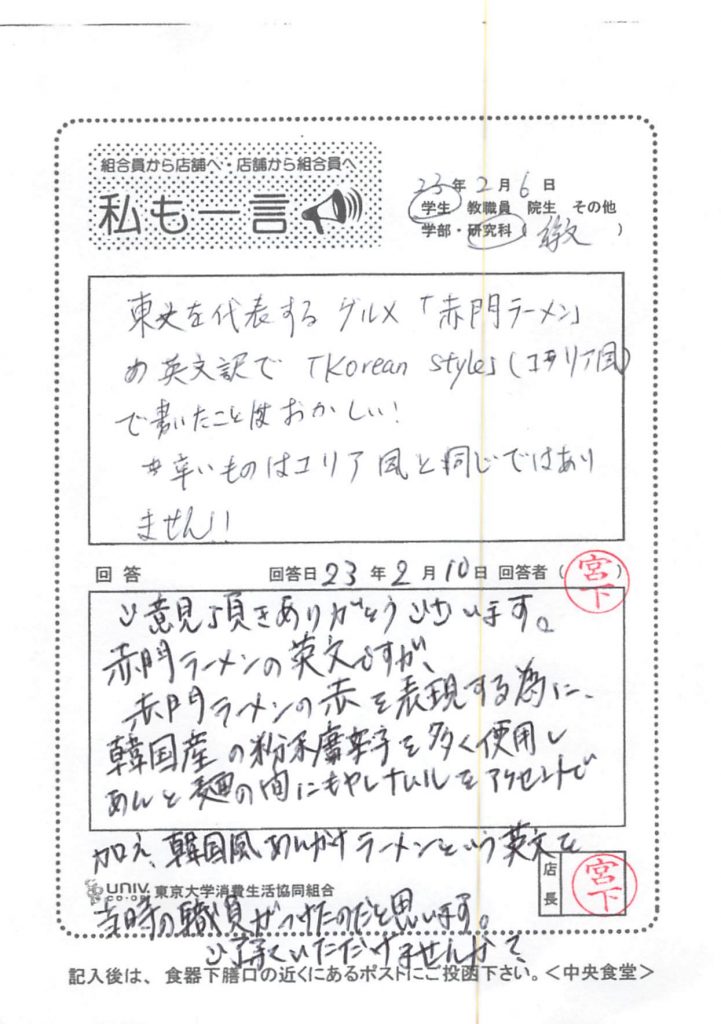 組合員から店舗へ・店舗から組合員へ
私も一言
23年2月6日
学生 教職員 院生 その他
学部・研究科( 教 )
東大を代表するグルメ「赤門ラーメン」
の英文訳で「Korean style」(コリア風)
で書いたことはおかしい!
#辛いものはコリア風と同じではあり
ません!!
回答 回答日23年2月10日 回答者(宮下)
ご意見頂きありがとうございます。
赤門ラーメンの英文ですが、
赤門ラーメンの赤を表現する為に、
韓国産の粉末唐辛子を多く使用し
あんと麺の間にモヤシナムルをアクセントで
加え、韓国風あんかけラーメンという英文を
UNIV. CO-OP 東京大学消費生活協同組合
店長 宮下
当時の職員がつけたのだと思います。
ご了承いただけませんか?
記入後は、食器下膳口の近くにあるポストにご投函下さい。<中央食堂>